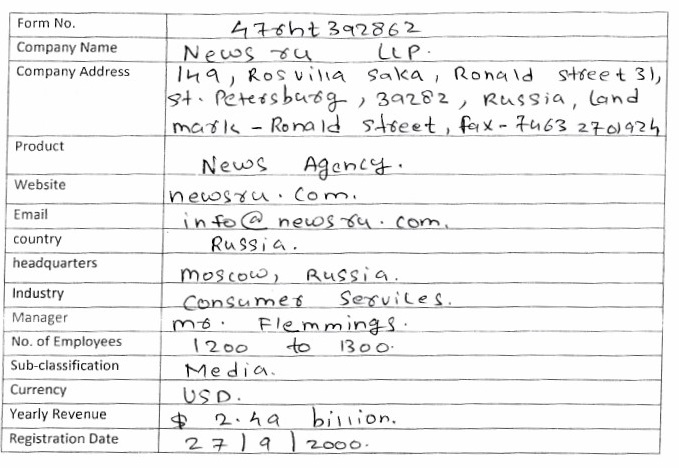 Form No. 47rht392862
Company Name News ru LLP.
Company Address 149, Rosvilla saka, Ronald street 31,
st. Petersburg, 39282, Russia, land
mark - Ronald street, fax - 7463 2701924
Product News Agency.
Website newsru.com.
Email info@newsru.com.
country Russia.
headquarters Moscow, Russia.
Industry Consumer Services.
Manager mr. Flemmings.
No. of Employees 1200 to 1300.
Sub-classification Media.
Currency USD.
Yearly Revenue $ 2.49 billion.
Registration Date 27/9/2000.